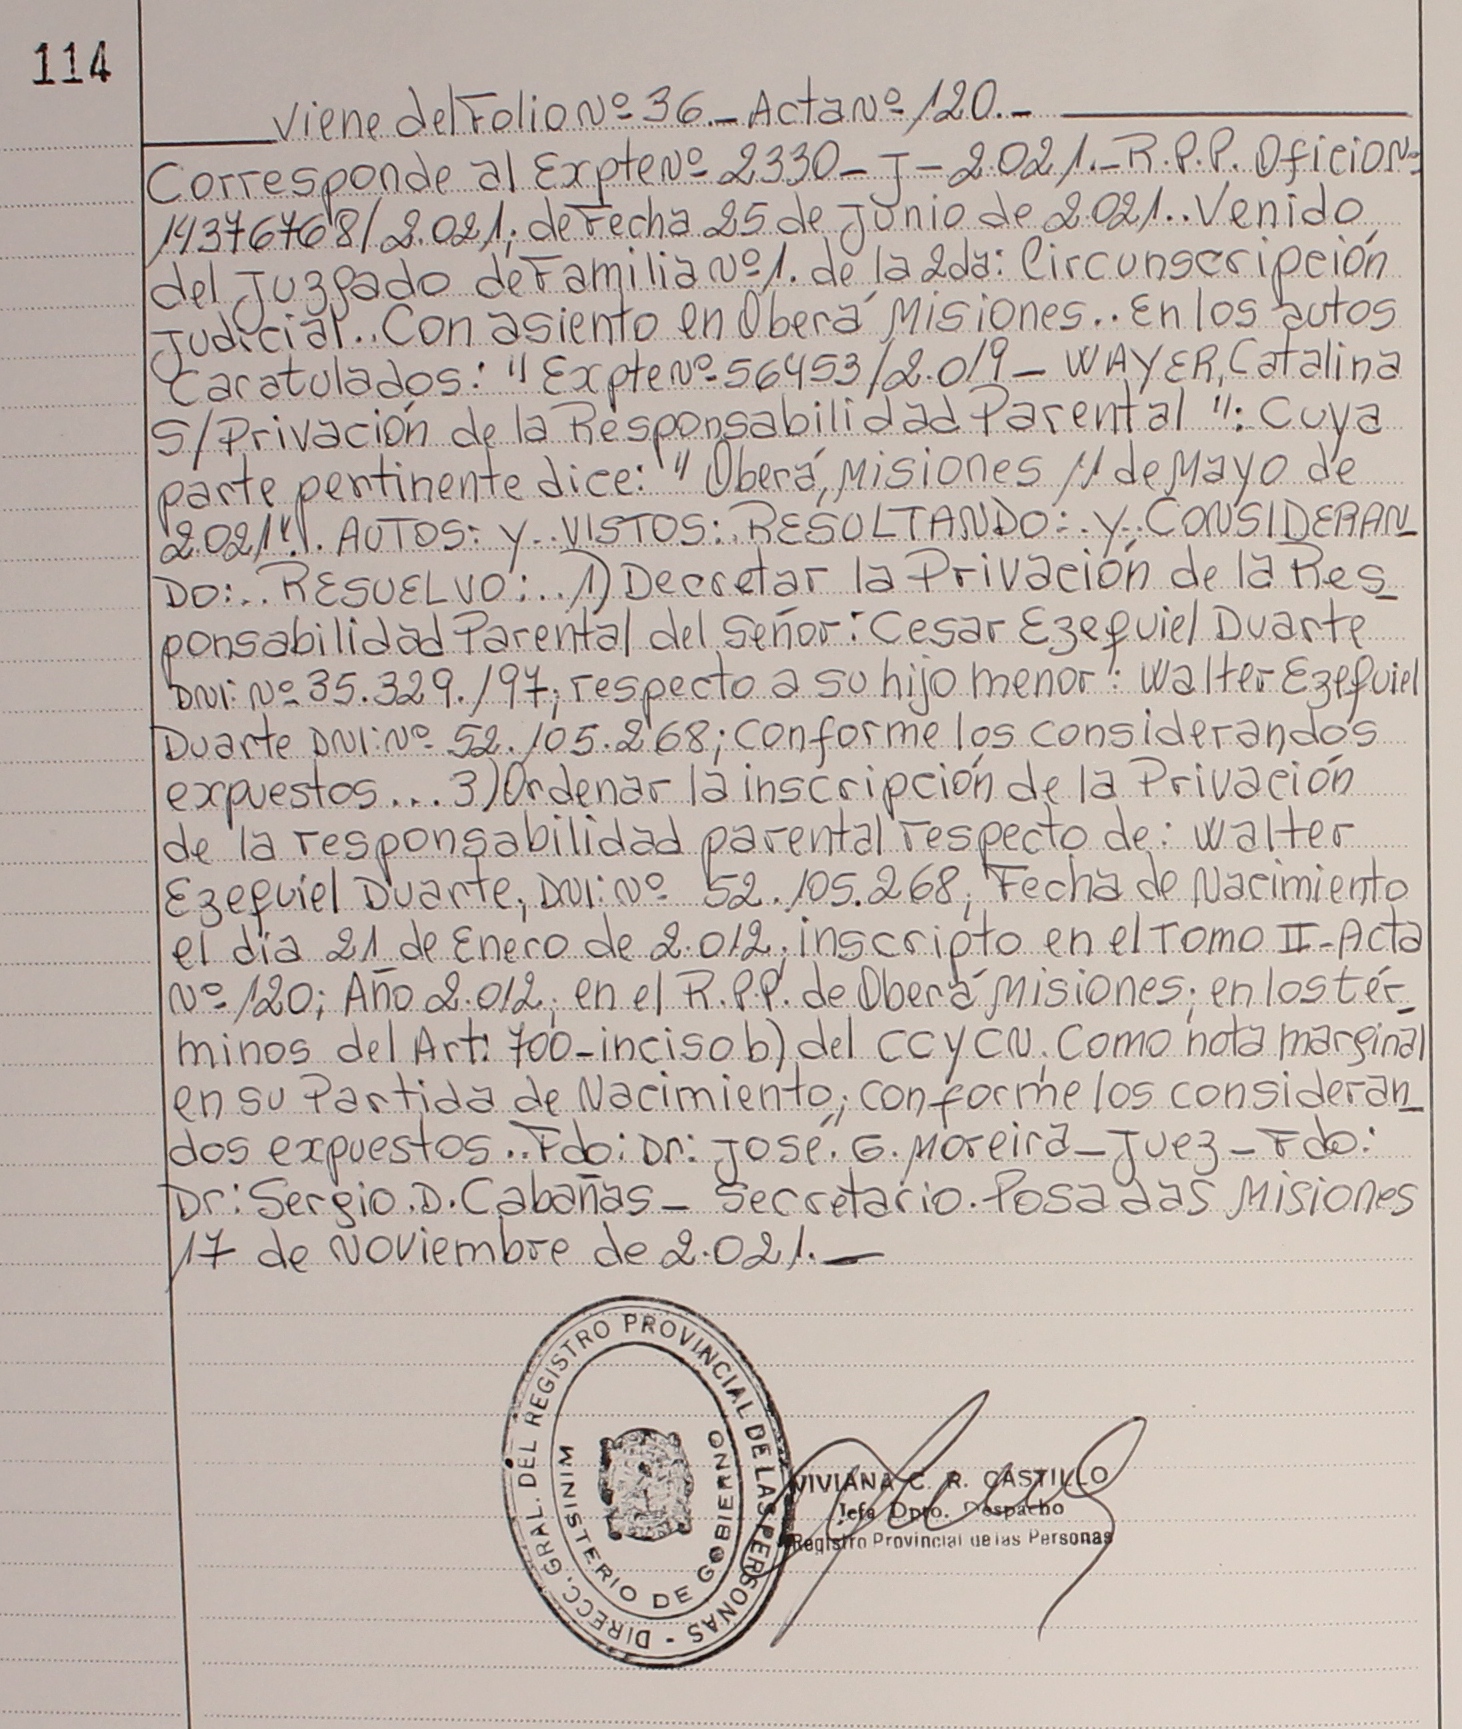 114
Viene del Folio Nº 36.- Acta Nº 120.-
Corresponde al Expte Nº 2330-J-2.021.- R.P.P. Oficio Nº
14376768/2.021; de Fecha 25 de Junio de 2.021.. Venido
del Juzgado de Familia Nº 1. de la 2da: Circunscripción
Judicial.. Con asiento en Oberá Misiones.. En los autos
Caratulados: "Expte Nº 56453/2.019 - WAYER, Catalina
S/Privación de la Responsabilidad Parental": Cuya
parte pertinente dice: "Oberá, Misiones 11 de Mayo de
2.021". AUTOS: y.. VISTOS: RESULTANDO: y.. CONSIDERAN_
DO:.. RESUELVO:.. 1) Decretar la Privación de la Res_
ponsabilidad Parental del Señor: Cesar Ezequiel Duarte
DNI: Nº 35.329.197; respecto a su hijo menor: Walter Ezequiel
Duarte DNI: Nº 52.105.268; conforme los considerandos
expuestos... 3) Ordenar la inscripción de la Privación
de la responsabilidad parental respecto de: Walter
Ezequiel Duarte, DNI: Nº 52.105.268, Fecha de Nacimiento
el día 21 de Enero de 2.012, inscripto en el Tomo II-Acta
Nº 120; Año 2.012, en el R.P.P. de Oberá Misiones; en los tér_
minos del Art: 700-inciso b) del CCyCN. Como nota marginal
en su Partida de Nacimiento; conforme los consideran_
dos expuestos.. Fdo: Dr: José. G. Moreira - Juez - Fdo:
Dr: Sergio. D. Cabañas - Secretario. Posadas Misiones
17 de Noviembre de 2.021.-
DIRECC. GRAL. DEL REGISTRO PROVINCIAL DE LAS PERSONAS -
MINISTERIO DE GOBIERNO
VIVIANA C. R. CASTILLO
Jefa Dpto. Despacho
Registro Provincial de las Personas